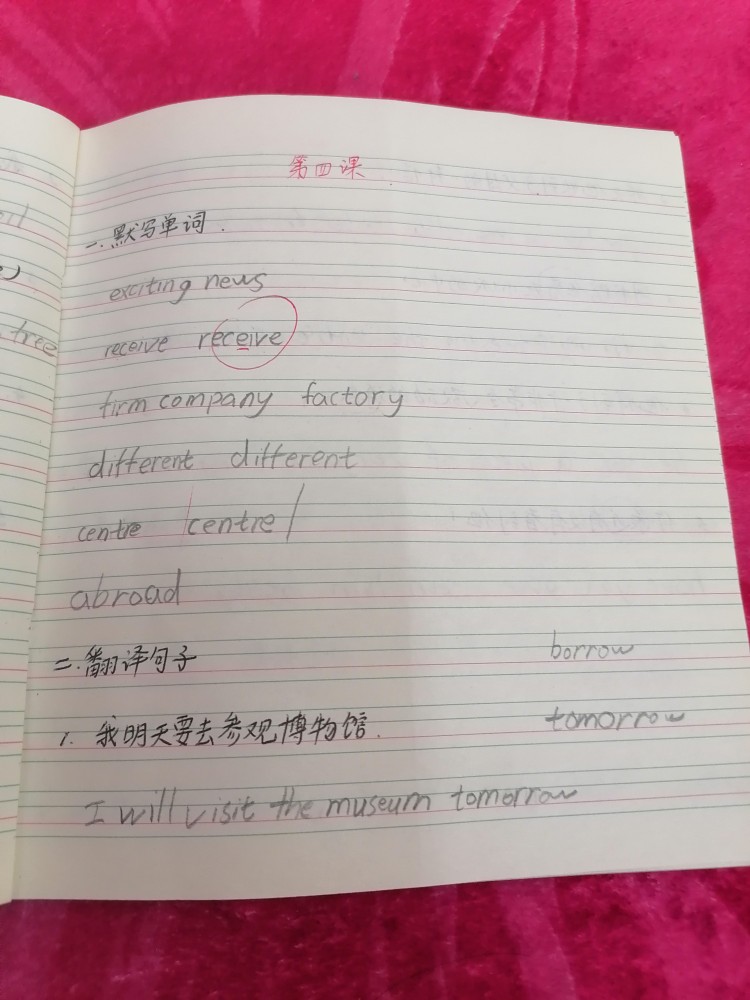 第四课
一.默写单词.
exciting news
receive receive
firm company factory
different different
centre centre
abroad
二.翻译句子
borrow
1. 我明天要去参观博物馆.
tomorrow
I will visit the museum tomorrow
tree